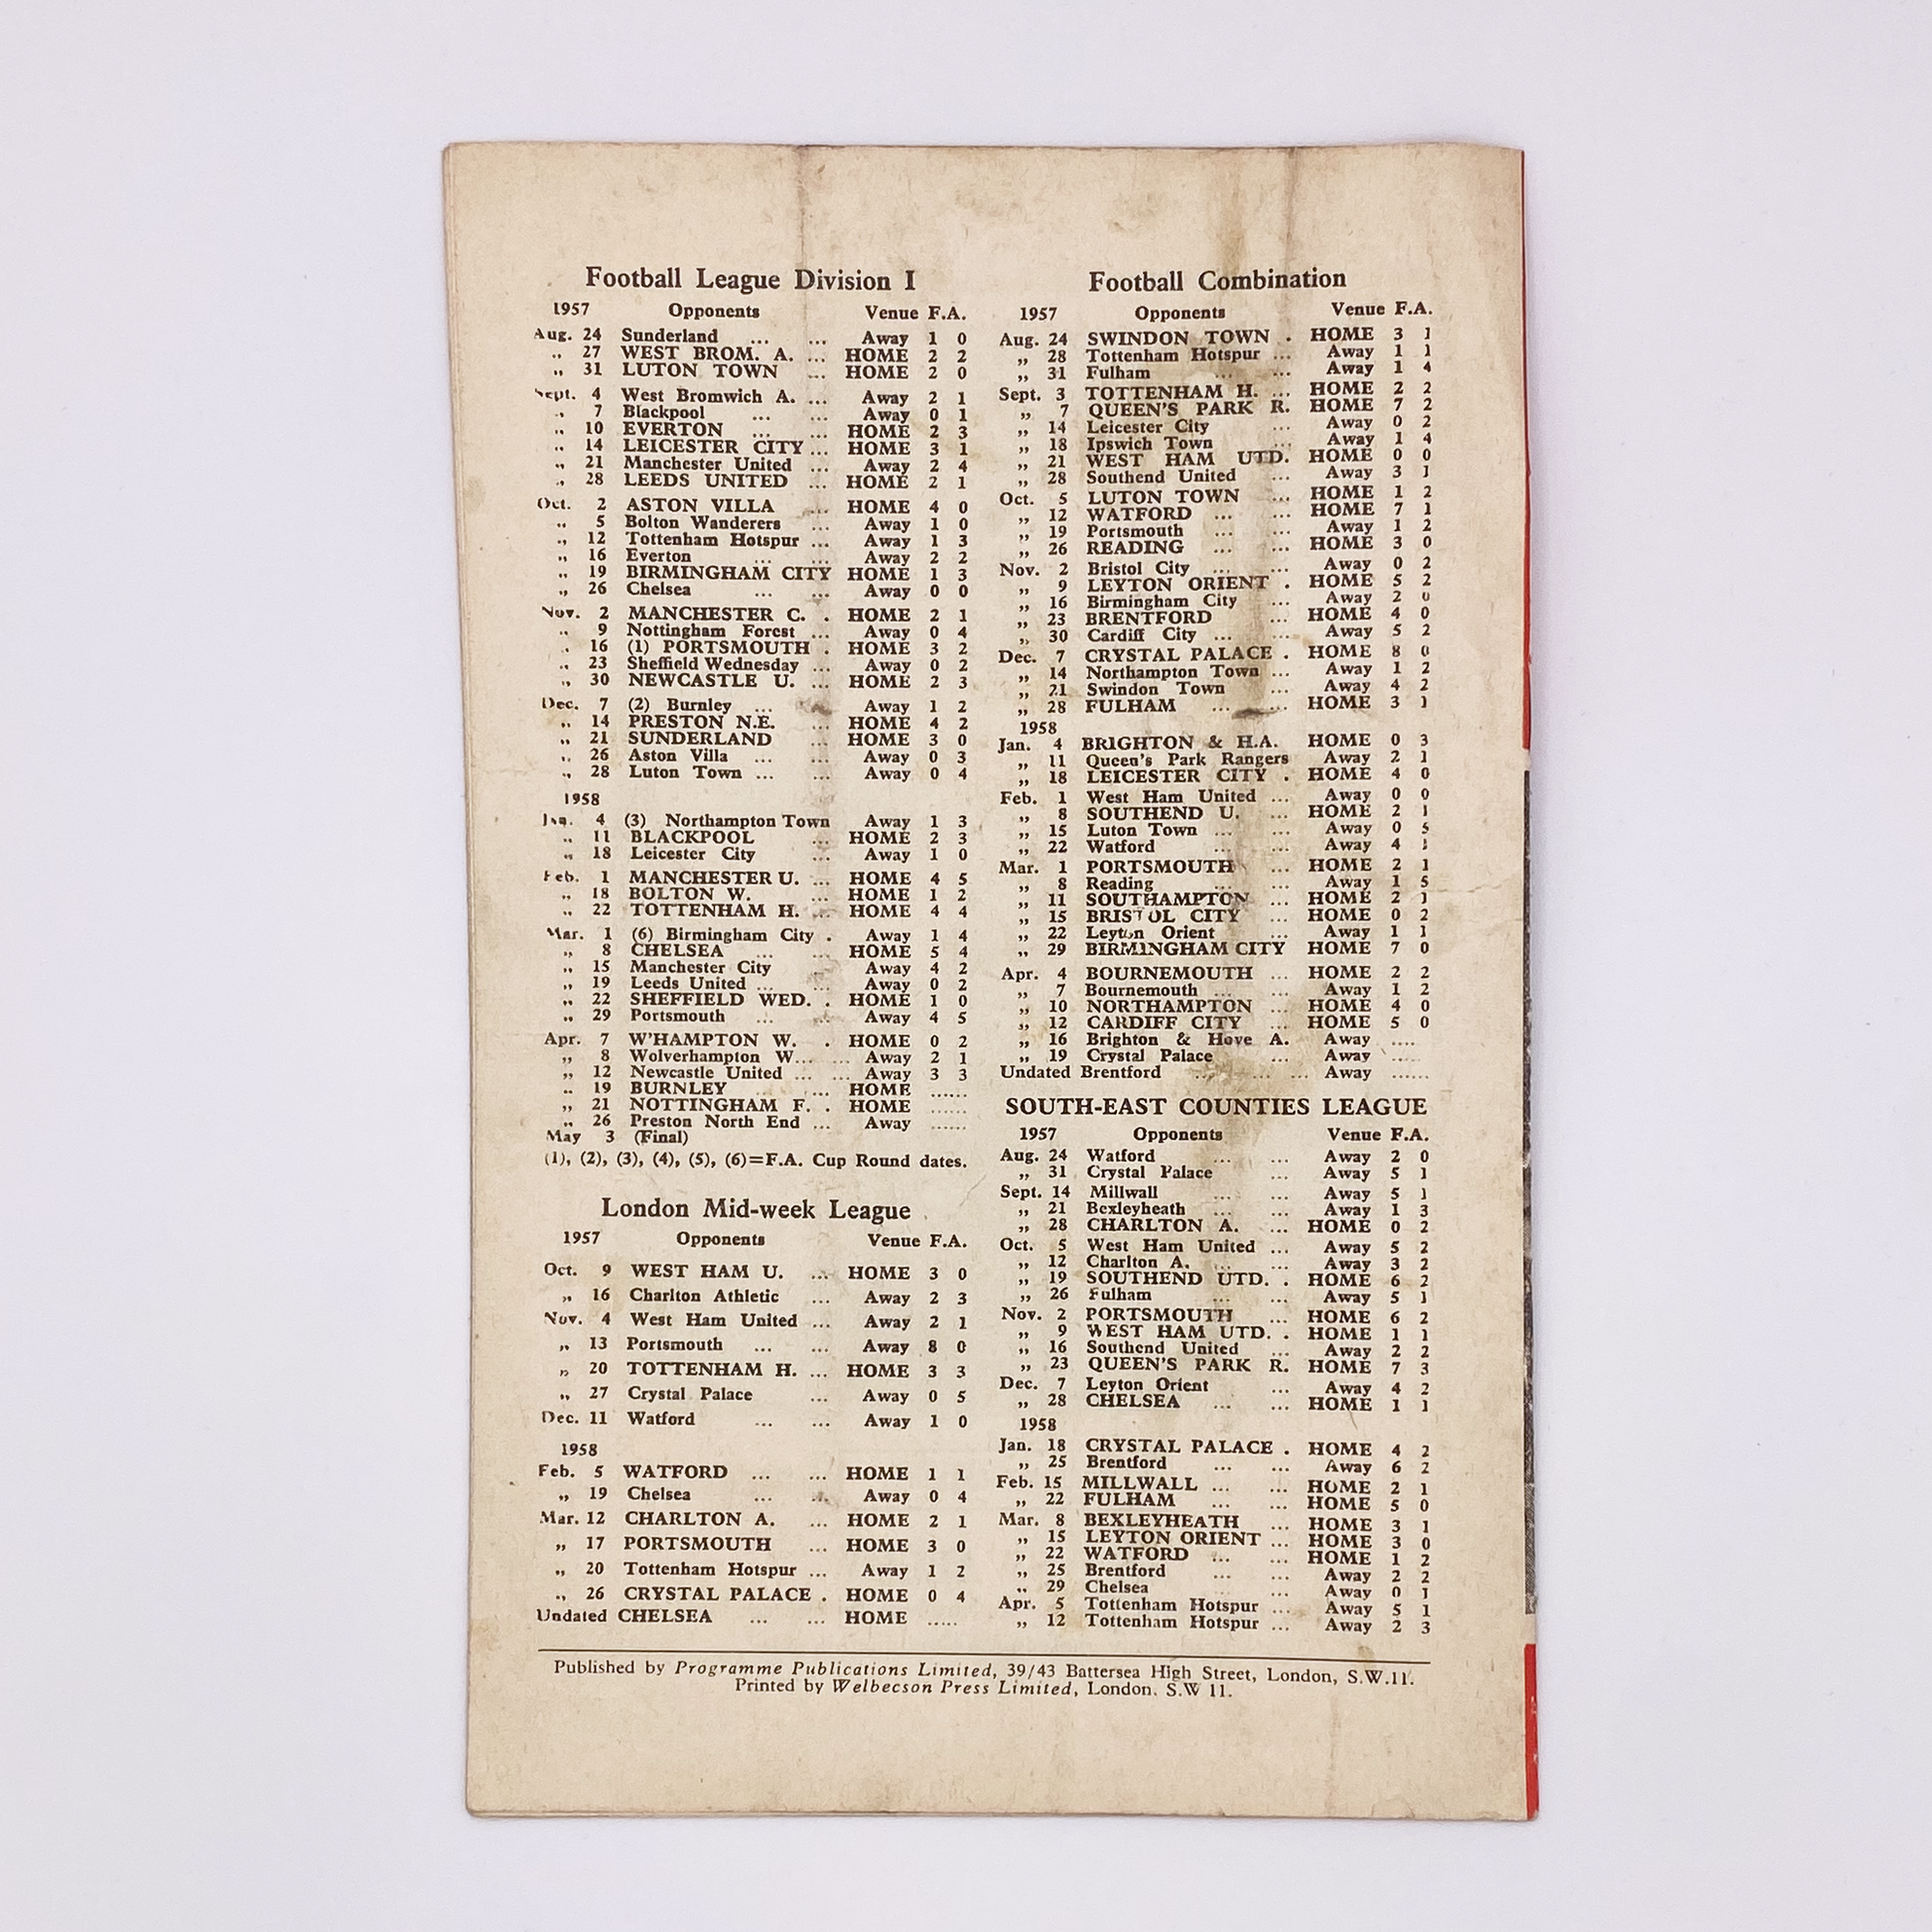 Football League Division I
1957 Opponents Venue F.A.
Aug. 24 Sunderland ... ... Away 1 0
„ 27 WEST BROM. A. ... HOME 2 2
„ 31 LUTON TOWN ... HOME 2 0
Sept. 4 West Bromwich A. ... Away 2 1
„ 7 Blackpool ... ... Away 0 1
„ 10 EVERTON ... ... HOME 2 3
„ 14 LEICESTER CITY ... HOME 3 1
„ 21 Manchester United ... Away 2 4
„ 28 LEEDS UNITED ... HOME 2 1
Oct. 2 ASTON VILLA ... HOME 4 0
„ 5 Bolton Wanderers ... Away 1 0
„ 12 Tottenham Hotspur ... Away 1 3
„ 16 Everton ... ... Away 2 2
„ 19 BIRMINGHAM CITY HOME 1 3
„ 26 Chelsea ... ... Away 0 0
Nov. 2 MANCHESTER C. . HOME 2 1
„ 9 Nottingham Forest ... Away 0 4
„ 16 (1) PORTSMOUTH . HOME 3 2
„ 23 Sheffield Wednesday ... Away 0 2
„ 30 NEWCASTLE U. ... HOME 2 3
Dec. 7 (2) Burnley ... Away 1 2
„ 14 PRESTON N.E. ... HOME 4 2
„ 21 SUNDERLAND ... HOME 3 0
„ 26 Aston Villa ... ... Away 0 3
„ 28 Luton Town ... ... Away 0 4
1958
Jan. 4 (3) Northampton Town Away 1 3
„ 11 BLACKPOOL ... HOME 2 3
„ 18 Leicester City ... Away 1 0
Feb. 1 MANCHESTER U. ... HOME 4 5
„ 18 BOLTON W. ... HOME 1 2
„ 22 TOTTENHAM H. ... HOME 4 4
Mar. 1 (6) Birmingham City . Away 1 4
„ 8 CHELSEA ... ... HOME 5 4
„ 15 Manchester City Away 4 2
„ 19 Leeds United ... ... Away 0 2
„ 22 SHEFFIELD WED. . HOME 1 0
„ 29 Portsmouth ... ... Away 4 5
Apr. 7 W'HAMPTON W. . HOME 0 2
„ 8 Wolverhampton W... ... Away 2 1
„ 12 Newcastle United ... ... Away 3 3
„ 19 BURNLEY ... ... HOME ......
„ 21 NOTTINGHAM F. . HOME ......
„ 26 Preston North End ... Away ......
May 3 (Final)
(1), (2), (3), (4), (5), (6)=F.A. Cup Round dates.
London Mid-week League
1957 Opponents Venue F.A.
Oct. 9 WEST HAM U. ... HOME 3 0
„ 16 Charlton Athletic ... Away 2 3
Nov. 4 West Ham United ... Away 2 1
„ 13 Portsmouth ... ... Away 8 0
„ 20 TOTTENHAM H. ... HOME 3 3
„ 27 Crystal Palace ... Away 0 5
Dec. 11 Watford ... ... Away 1 0
1958
Feb. 5 WATFORD ... ... HOME 1 1
„ 19 Chelsea ... ... Away 0 4
Mar. 12 CHARLTON A. ... HOME 2 1
„ 17 PORTSMOUTH ... HOME 3 0
„ 20 Tottenham Hotspur ... Away 1 2
„ 26 CRYSTAL PALACE . HOME 0 4
Undated CHELSEA ... ... HOME .....
Football Combination
1957 Opponents Venue F.A.
Aug. 24 SWINDON TOWN . HOME 3 1
„ 28 Tottenham Hotspur ... Away 1 1
„ 31 Fulham ... ... Away 1 4
Sept. 3 TOTTENHAM H. ... HOME 2 2
„ 7 QUEEN'S PARK R. HOME 7 2
„ 14 Leicester City ... Away 0 2
„ 18 Ipswich Town ... Away 1 4
„ 21 WEST HAM UTD. HOME 0 0
„ 28 Southend United ... Away 3 1
Oct. 5 LUTON TOWN ... HOME 1 2
„ 12 WATFORD ... ... HOME 7 1
„ 19 Portsmouth ... ... Away 1 2
„ 26 READING ... ... HOME 3 0
Nov. 2 Bristol City ... ... Away 0 2
„ 9 LEYTON ORIENT . HOME 5 2
„ 16 Birmingham City ... Away 2 0
„ 23 BRENTFORD ... HOME 4 0
„ 30 Cardiff City ... ... Away 5 2
Dec. 7 CRYSTAL PALACE . HOME 8 0
„ 14 Northampton Town ... Away 1 2
„ 21 Swindon Town ... Away 4 2
„ 28 FULHAM ... ... HOME 3 1
1958
Jan. 4 BRIGHTON & H.A. HOME 0 3
„ 11 Queen's Park Rangers Away 2 1
„ 18 LEICESTER CITY . HOME 4 0
Feb. 1 West Ham United ... Away 0 0
„ 8 SOUTHEND U. ... HOME 2 1
„ 15 Luton Town ... ... Away 0 5
„ 22 Watford ... ... Away 4 1
Mar. 1 PORTSMOUTH ... HOME 2 1
„ 8 Reading ... ... Away 1 5
„ 11 SOUTHAMPTON ... HOME 2 1
„ 15 BRISTOL CITY ... HOME 0 2
„ 22 Leyton Orient ... Away 1 1
„ 29 BIRMINGHAM CITY HOME 7 0
Apr. 4 BOURNEMOUTH ... HOME 2 2
„ 7 Bournemouth ... ... Away 1 2
„ 10 NORTHAMPTON ... HOME 4 0
„ 12 CARDIFF CITY ... HOME 5 0
„ 16 Brighton & Hove A. Away ....
„ 19 Crystal Palace ... Away .....
Undated Brentford ... ... ... Away ......
SOUTH-EAST COUNTIES LEAGUE
1957 Opponents Venue F.A.
Aug. 24 Watford ... ... Away 2 0
„ 31 Crystal Palace ... Away 5 1
Sept. 14 Millwall ... ... Away 5 1
„ 21 Bexleyheath ... ... Away 1 3
„ 28 CHARLTON A. ... HOME 0 2
Oct. 5 West Ham United ... Away 5 2
„ 12 Charlton A. ... ... Away 3 2
„ 19 SOUTHEND UTD. . HOME 6 2
„ 26 Fulham ... ... Away 5 1
Nov. 2 PORTSMOUTH ... HOME 6 2
„ 9 WEST HAM UTD. . HOME 1 1
„ 16 Southend United ... Away 2 2
„ 23 QUEEN'S PARK R. HOME 7 3
Dec. 7 Leyton Orient ... Away 4 2
„ 28 CHELSEA ... ... HOME 1 1
1958
Jan. 18 CRYSTAL PALACE . HOME 4 2
„ 25 Brentford ... ... Away 6 2
Feb. 15 MILLWALL ... ... HOME 2 1
„ 22 FULHAM ... ... HOME 5 0
Mar. 8 BEXLEYHEATH ... HOME 3 1
„ 15 LEYTON ORIENT ... HOME 3 0
„ 22 WATFORD ... ... HOME 1 2
„ 25 Brentford ... ... Away 2 2
„ 29 Chelsea ... ... Away 0 1
Apr. 5 Tottenham Hotspur ... Away 5 1
„ 12 Tottenham Hotspur ... Away 2 3
Published by Programme Publications Limited, 39/43 Battersea High Street, London, S.W.11.
Printed by Welbecson Press Limited, London. S.W 11.